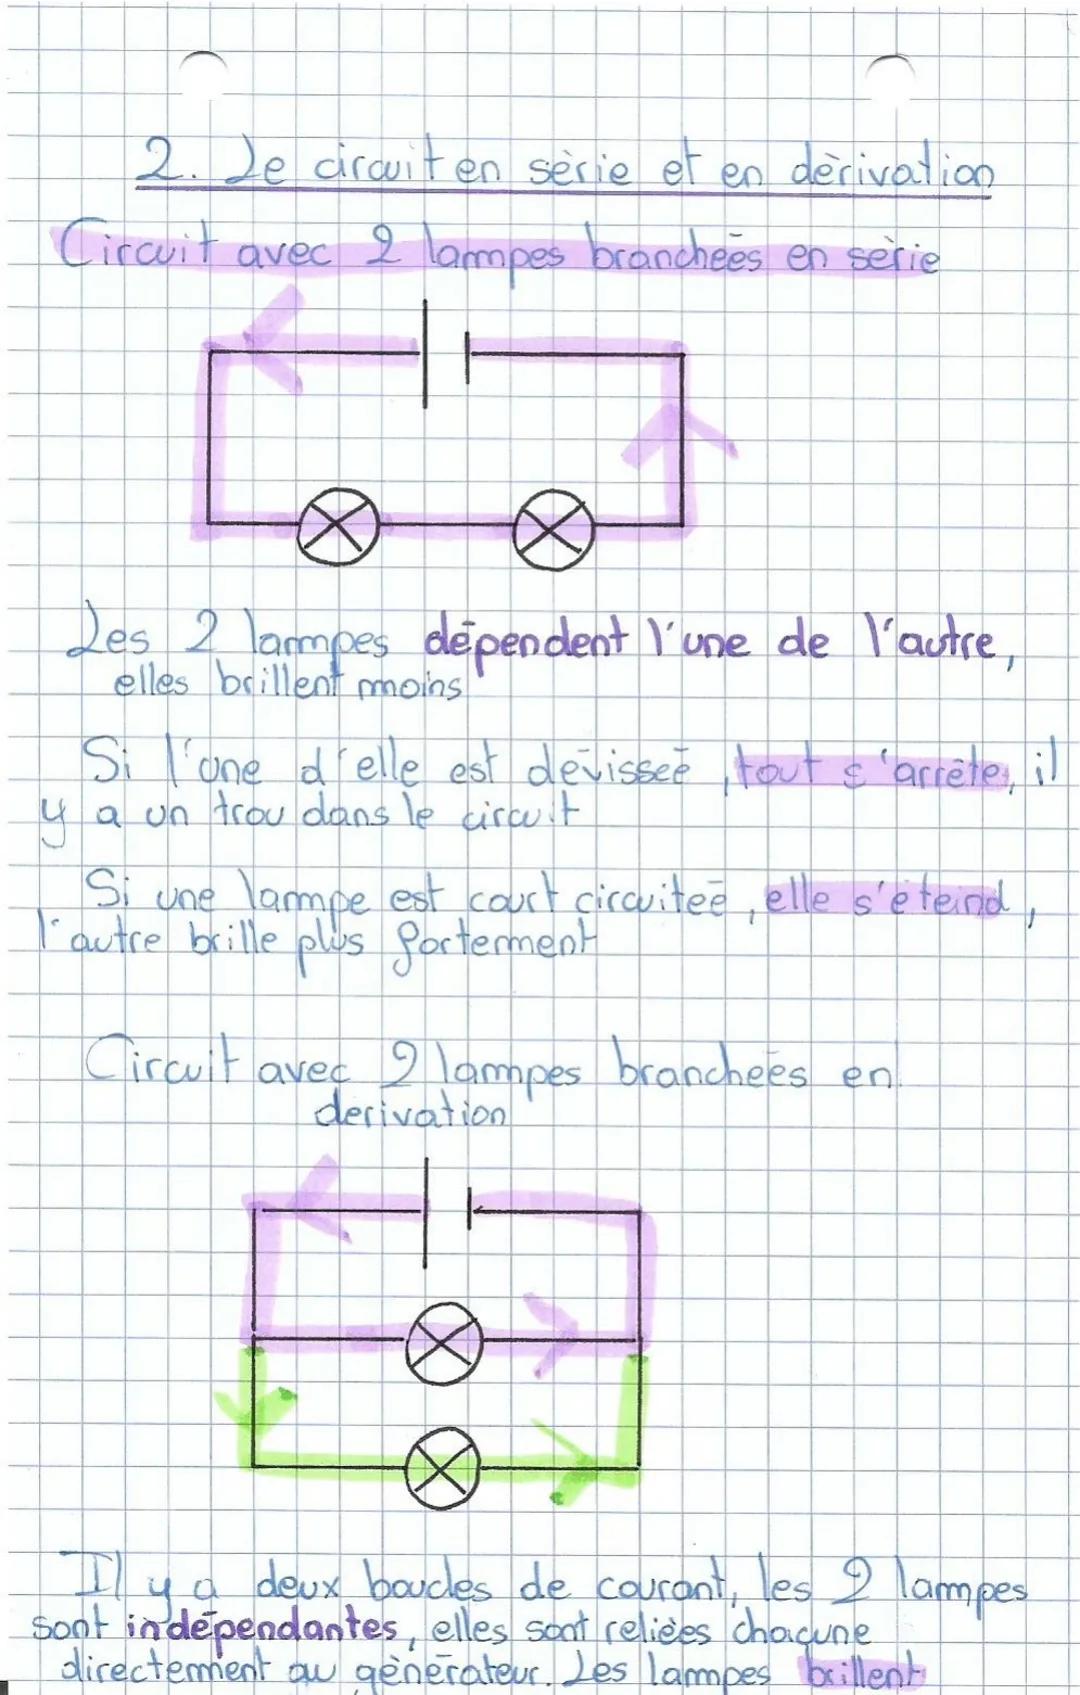 2. Le circuit en sèrie et en dèrivation
Circuit avec 2 lampes branchées en sèrie
Les 2 lampes dépendent l'une de l'autre,
elles brillent moins
Si l'une d'elle est dévisseé, tout s'arrête, il
y a un trou dans le circuit
Si une lampe est court circuiteé, elle s'éteind,
l'autre brille plus fortement
Circuit avec 2 lampes brancheés en
derivation
Il y a deux boucles de courant, les 2 lampes
sont indépendantes, elles sont relièes chacune
directement au gènérateur. Les lampes brillent